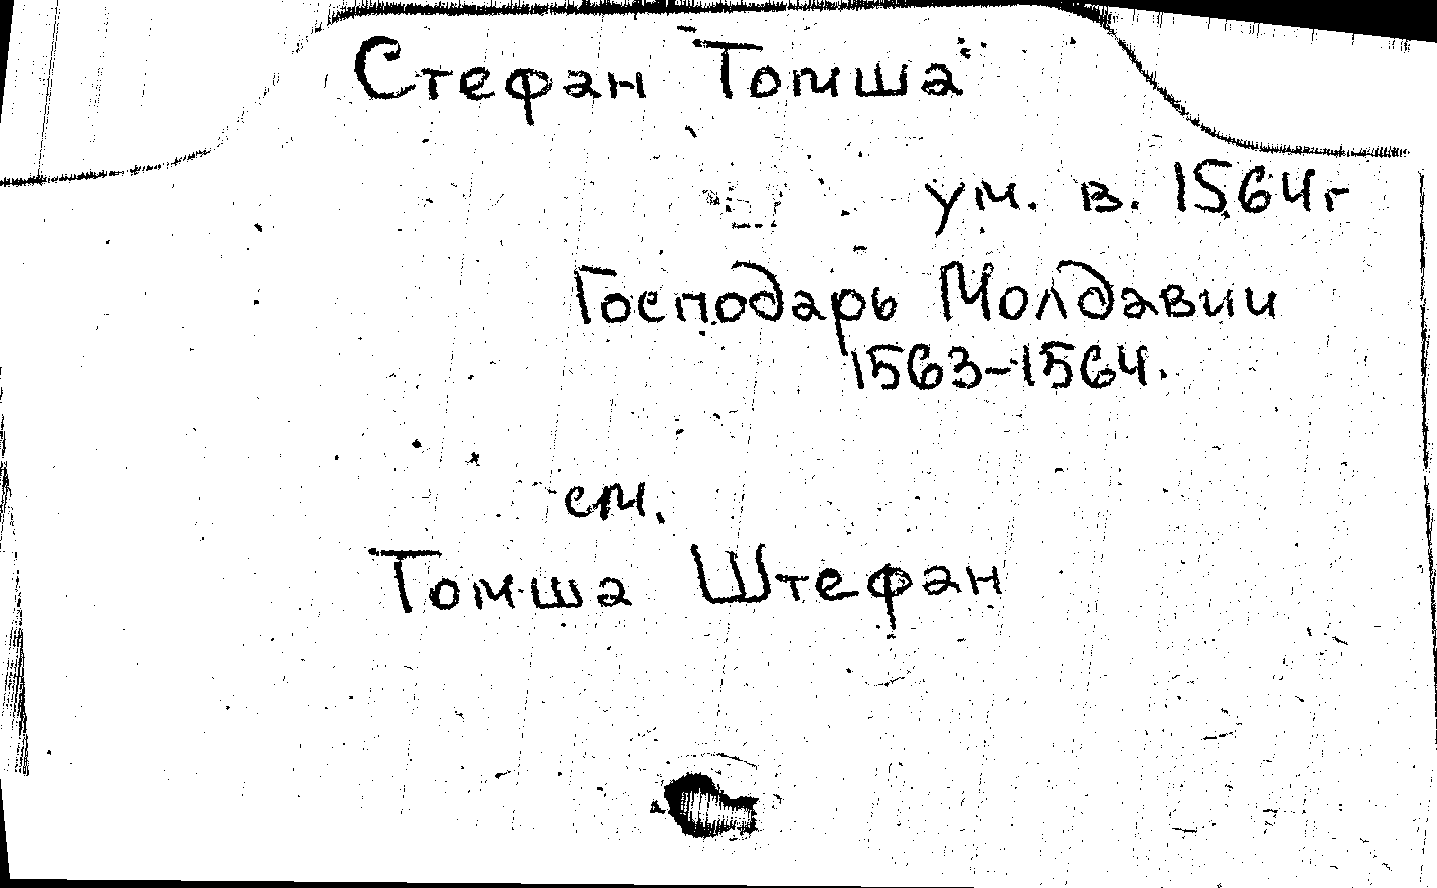 Стефан Томша
ум. в. 1564г
Господарь Молдавии
1563-1564.
см.
Томша Штефан